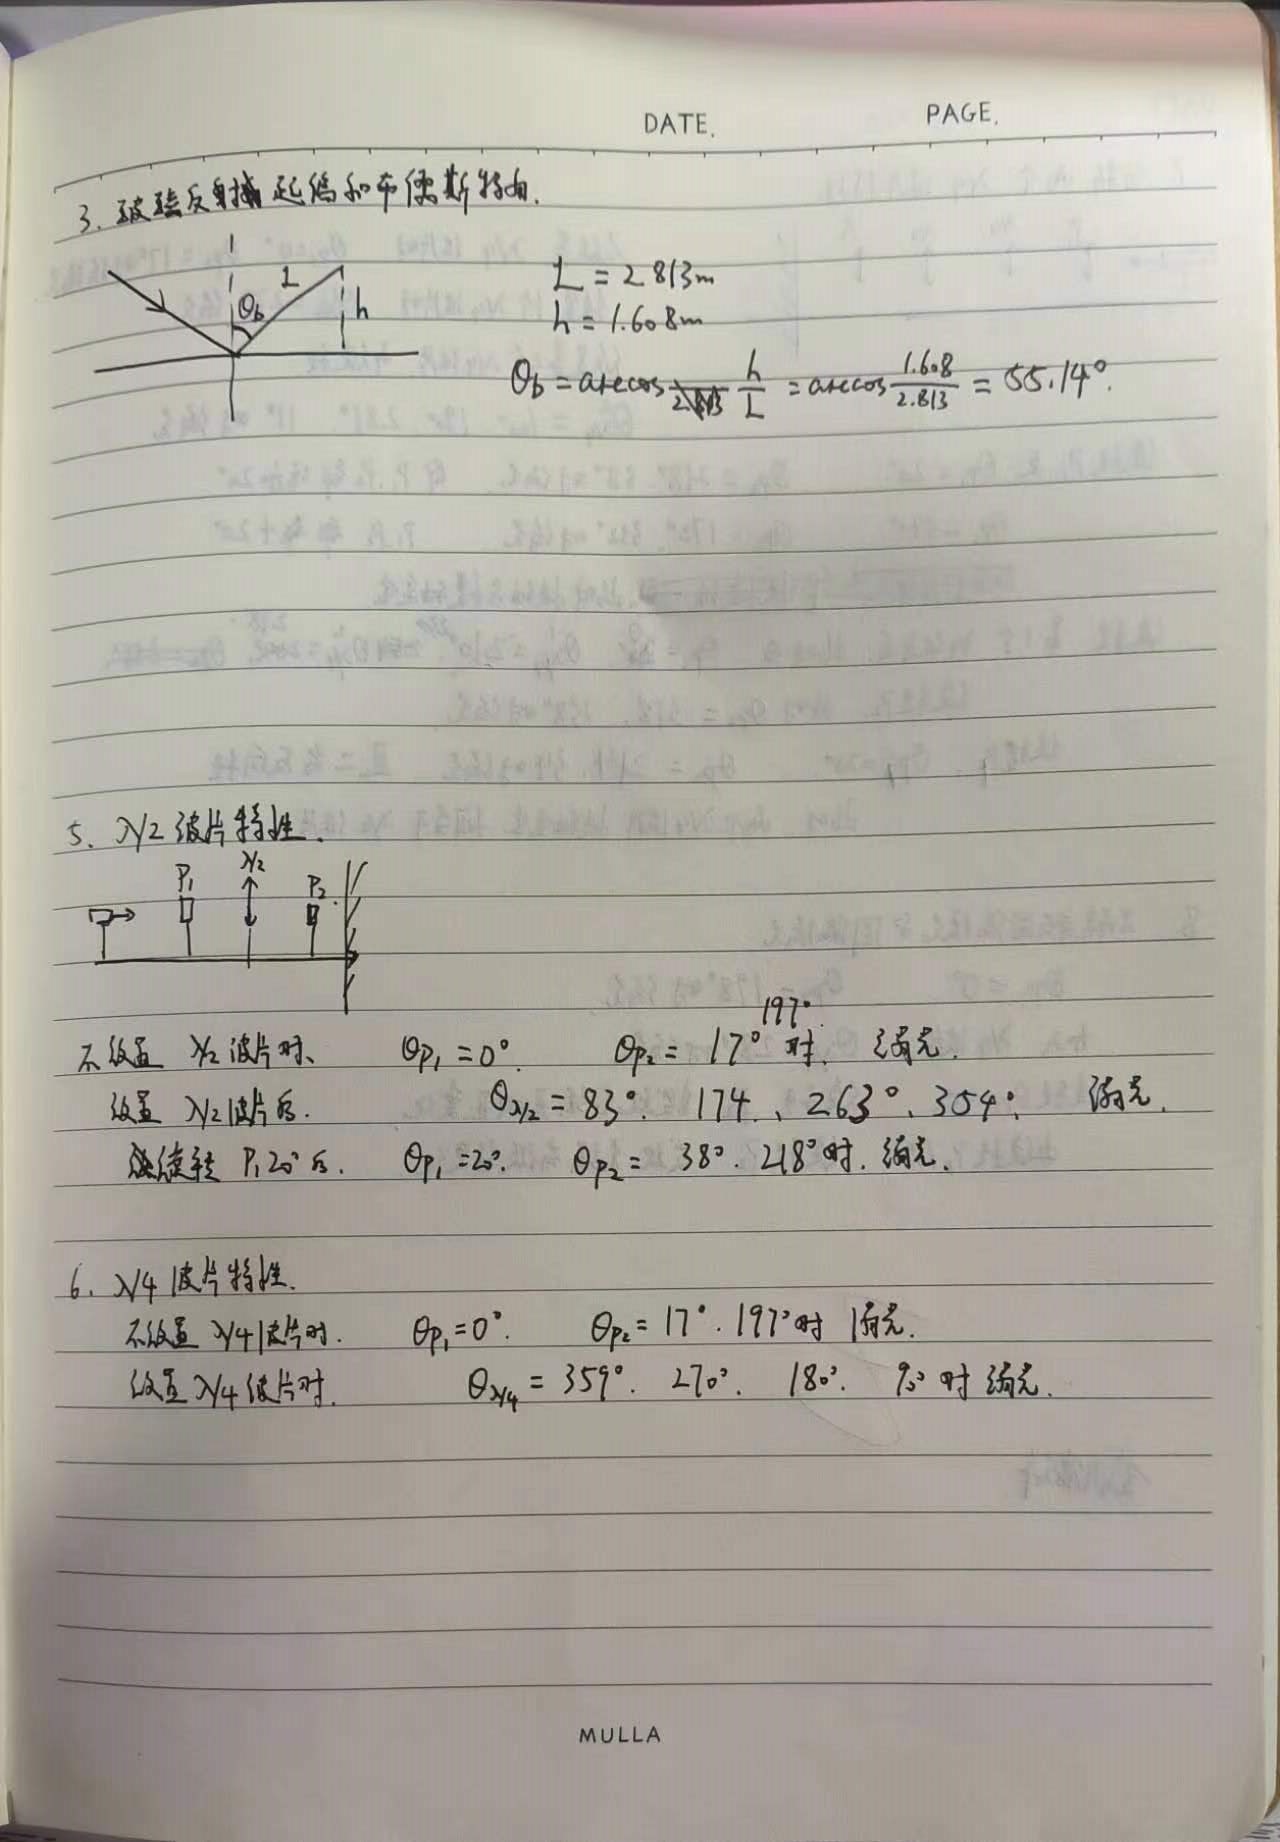 DATE. PAGE.
3. 玻璃反射起偏和布儒斯特角.
L
θb
h
L = 2.813m
h = 1.608m
θb = arccos h/L = arccos 1.608/2.813 = 55.14°.
5. λ/2 波片特性.
P₁ λ/2 P₂
197°
不放置 λ/2 波片时、 θP₁ = 0°. θP₂ = 17° 时. 消光.
放置 λ/2 波片后. θλ/2 = 83° 174 、263°、354°. 消光.
旋转 P₁ 20° 后. θP₁ = 20°. θP₂ = 38°. 218° 时. 消光.
6. λ/4 波片特性.
不放置 λ/4 波片时. θP₁ = 0°. θP₂ = 17°. 197° 时 消光.
放置 λ/4 波片时. θλ/4 = 359°. 270°. 180°. 90° 时 消光.
MULLA